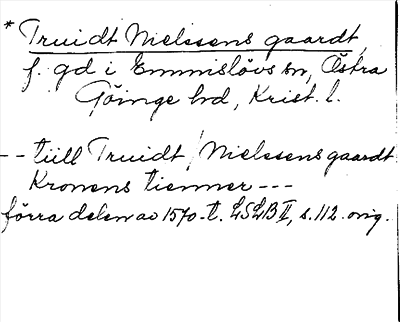 * Truidt Nielssens gaardt,
f. gd i Emmislövs sn, Östra
Göinge hd, Krist. l.
-- till Truidt Nielssens gaardt
Kronens tienner ---
förra delen av 1570-t. LSLB II, s. 112. orig.